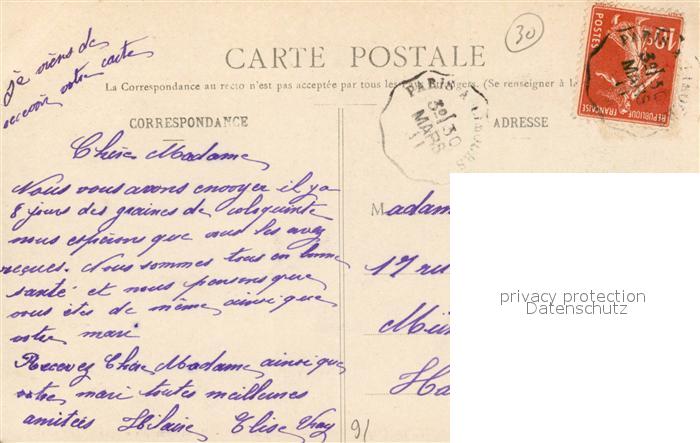 Je viens de
recevoir votre carte
30
CARTE POSTALE
La Correspondance au recto n'est pas acceptée par tous les
gers. (Se renseigner à la
CORRESPONDANCE
ADRESSE
PARIS A LIMOGES
30/30
MARS
11
POSTES
10c
REPUBLIQUE FRANÇAISE
Chère Madame
Nous vous avons envoyer il y a
8 jours des graines de coloquinte
nous espérons que vous les avez
reçues. Nous sommes tous en bonne
santé et nous pensons que
vous êtes de même ainsi que
votre mari
Recevez Chère Madame ainsi que
votre mari toutes meilleures
amitiées Hilaire Elise
Madam
17 ru
Ha
91
privacy protection
Datenschutz